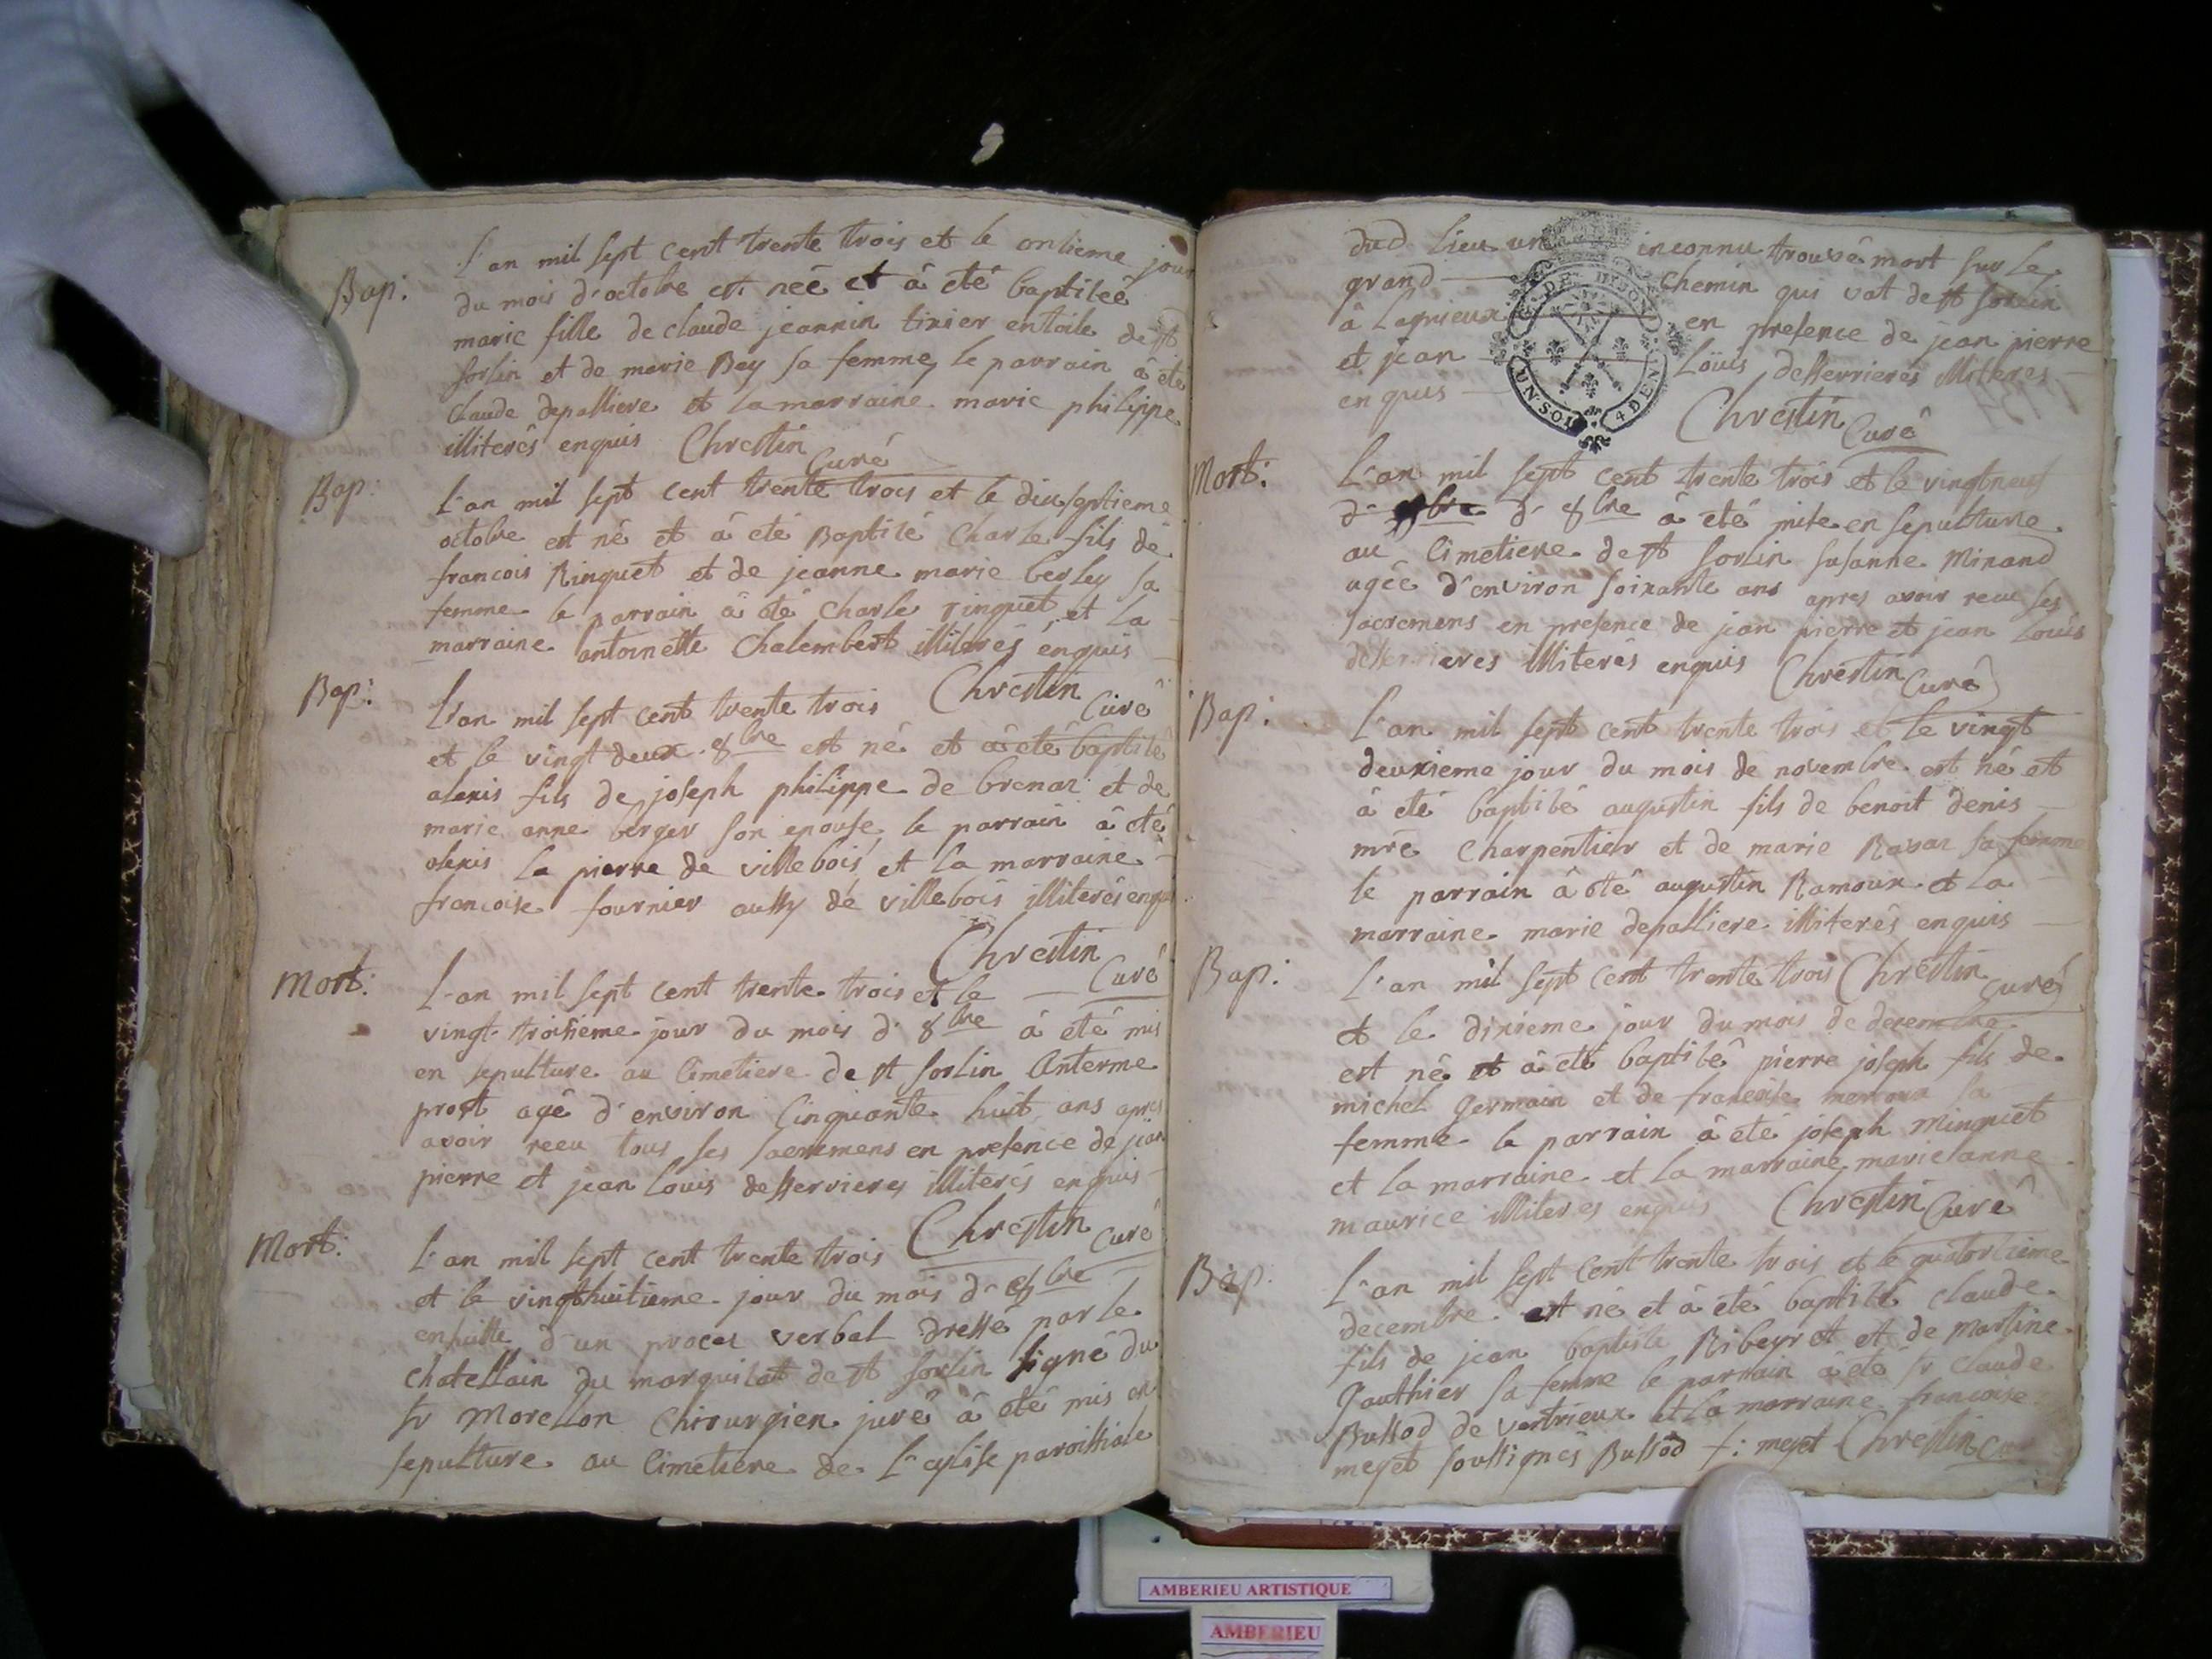 Bap: L'an mil sept cent trente trois et le onzieme jour
du mois d'octobre est néé et â eté baptiséé
marie fille de claude jeannin tixier en toile de st
sorlin et de marie Bey sa femme, le parrain â eté
claude depalliere et la marraine marie philippe
illiterés enquis Chrestin Curé
Bap: L'an mil sept cent trente trois et le dix septieme
octobre est né et â eté Baptisé Charle fils de
francois Ringuet et de jeanne marie berley sa
femme le parrain â eté Charle ringuet et la
marraine antoinette Chalembert illiterés enquis
Chrestin Curé
Bap: L'an mil sept cent trente trois
et le vingt deux 8bre est né et â eté baptisé
alexis fils de joseph philippe de brenaz et de
marie anne berger son epouse le parrain â eté
alexis la pierre de villebois et la marraine
francoise fournier aussy de villebois illiterés enquis
Chrestin Curé
Mort: L'an mil sept cent trente trois et le
vingt troisieme jour du mois d'8bre â eté mis
en sepulture au Cimetiere de st sorlin Anterme
prost agé d'environ Cinquante huit ans apres
avoir receu tous ses sacremens en presence de jean
pierre et jean Louis desservieres illiterés enquis
Chrestin Curé
Mort: L'an mil sept cent trente trois
et le vingthuitieme jour du mois d'8bre
ensuitte d'un proces verbal dressé par le
chatellain du marquisat de st sorlin signé du
sr Morellon Chirurgien juré â eté mis en
sepulture au Cimetiere de L'eglise paroissiale
dud lieu un inconnu trouvé mort sur le
grand chemin qui vat de st sorlin
â Lagnieux en presence de jean pierre
et jean Loüis desservieres illiteres
enquis
DE DIJON
UN SOL 4 DEN
Chrestin Curé
Mort: L'an mil sept cent trente trois et le vingtneuf
d' d'8bre â eté mise en sepulture
au Cimetiere de st sorlin susanne Minand
agéé d'environ soixante ans apres avoir receu ses
sacremens en presence de jean pierre et jean Louis
desservieres illiterés enquis Chrestin Curé
Bap: L'an mil sept cent trente trois et le vingt
deuxieme jour du mois de novembre est né et
â eté baptisé augustin fils de benoit denis
mre Charpentier et de marie Ravaz sa femme
le parrain â eté augustin Ramoux et la
marraine marie depalliere illiterés enquis
Chrestin Curé
Bap: L'an mil sept cent trente trois
et le dixieme jour du mois de decembre
est né et â eté baptisé pierre joseph fils de
michel Germain et de francoise sa
femme le parrain â eté joseph minguet
et la marraine et la marraine marie anne
maurice illiteres enquis Chrestin Curé
Bap: L'an mil sept Cent trente trois et le quatorzieme
decembre est né et â eté baptisé claude
fils de jean baptiste Ribeyret et de Martine
Gauthier sa femme le parrain â eté sr Claude
Bussod de vertrieux et la marraine francoise
meyet soussignés Bussod f: meyet Chrestin Curé
AMBERIEU ARTISTIQUE
AMBERIEU